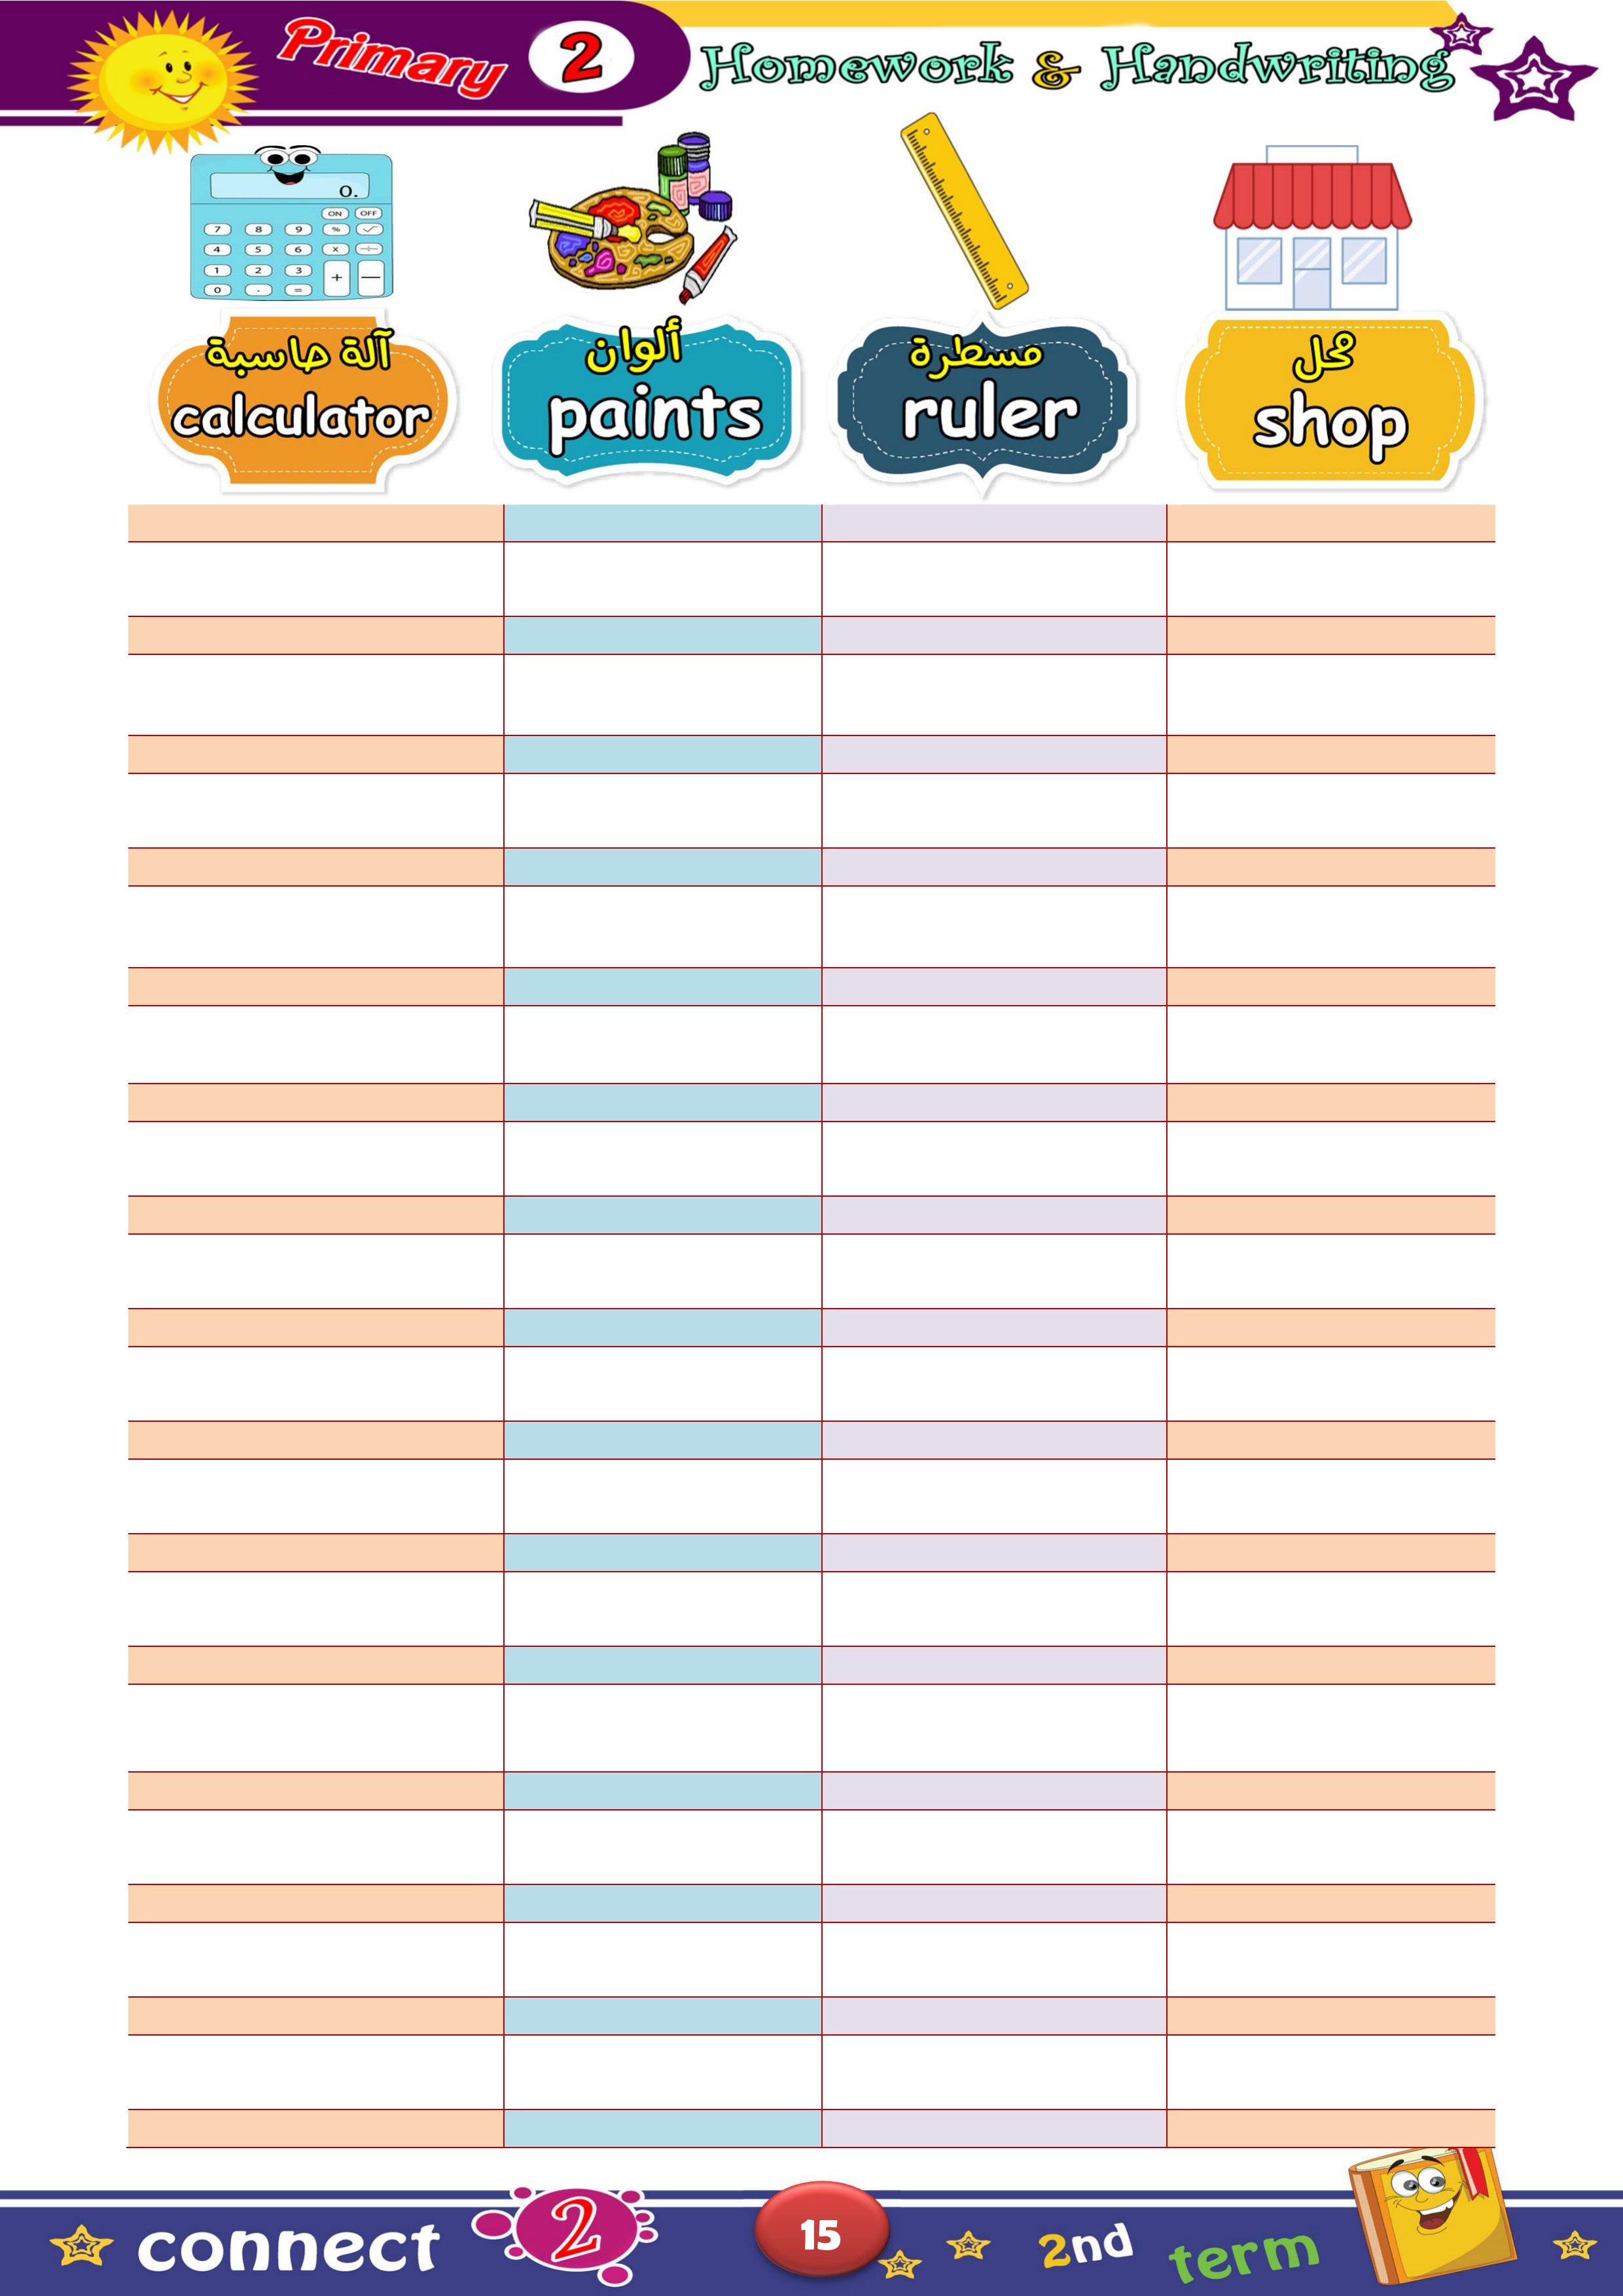 Primary 2 Homework & Handwriting
0.
ON OFF
7 8 9 % ✓
4 5 6 x ÷
1 2 3 + —
0 . =
آلة حاسبة
calculator
ألوان
paints
مسطرة
ruler
محل
shop
connect 2 15 2nd term